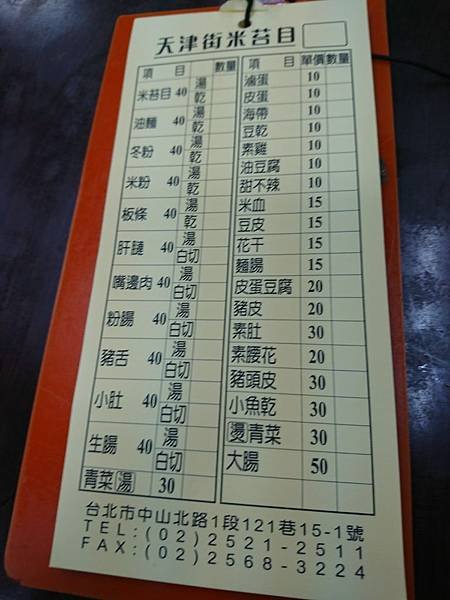 天津街米苔目
項目 數量
米苔目 40 湯 乾
油麵 40 湯 乾
冬粉 40 湯 乾
米粉 40 湯 乾
板條 40 湯 乾
肝臆 40 湯 白切
嘴邊肉 40 湯 白切
粉腸 40 湯 白切
豬舌 40 湯 白切
小肚 40 湯 白切
生腸 40 湯 白切
青菜(湯) 30
項目 單價 數量
滷蛋 10
皮蛋 10
海帶 10
豆乾 10
素雞 10
油豆腐 10
甜不辣 10
米血 15
豆皮 15
花干 15
麵腸 15
皮蛋豆腐 20
豬皮 20
素肚 30
素腰花 20
豬頭皮 30
小魚乾 30
(燙)青菜 30
大腸 50
台北市中山北路1段121巷15-1號
TEL:(02)2521-2511
FAX:(02)2568-3224